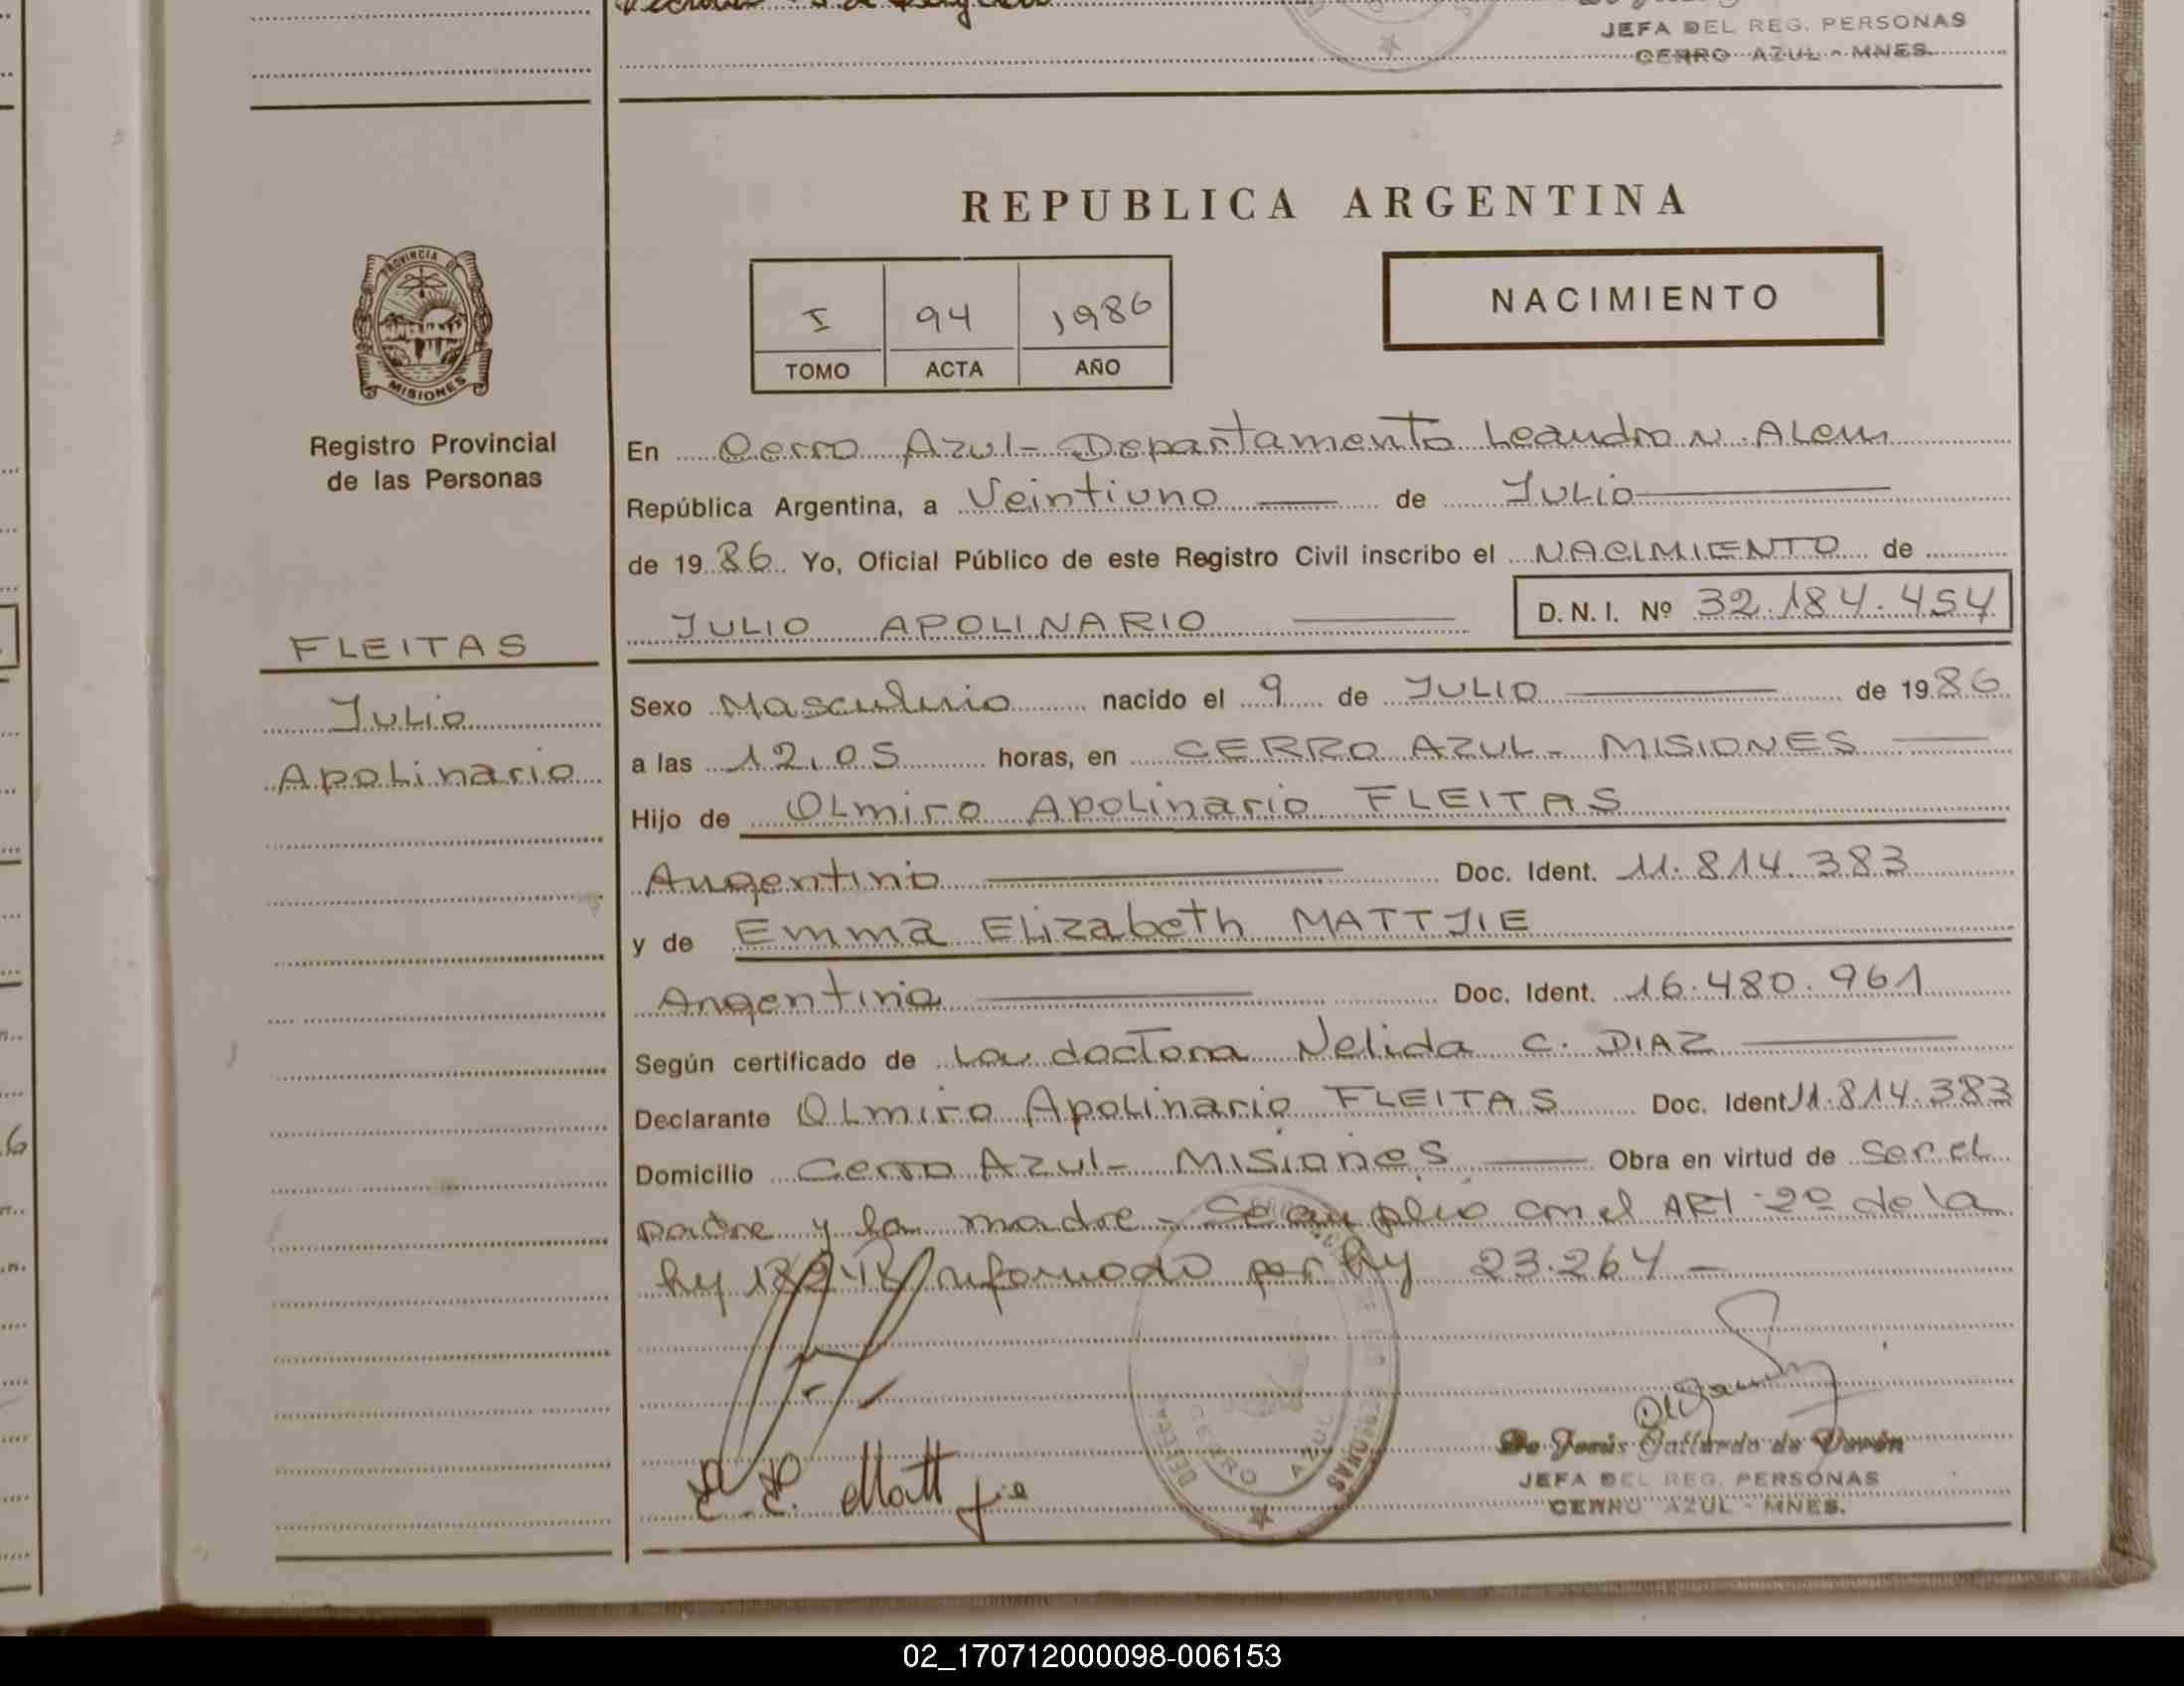 JEFA DEL REG. PERSONAS
CERRO AZUL - MNES.
REPUBLICA ARGENTINA
PROVINCIA DE
MISIONES
I 94 1986
TOMO ACTA AÑO
NACIMIENTO
Registro Provincial
de las Personas
FLEITAS
Julio
Apolinario
En Cerro Azul - Departamento Leandro N. Alem
República Argentina, a Veintiuno de Julio
de 1986 Yo, Oficial Público de este Registro Civil inscribo el NACIMIENTO de
JULIO APOLINARIO D.N.I. Nº 32.184.454
Sexo Masculino nacido el 9 de JULIO de 1986
a las 12,05 horas, en CERRO AZUL - MISIONES
Hijo de Olmiro Apolinario FLEITAS
Argentino Doc. Ident. 11.814.383
y de Emma Elizabeth MATTJIE
Argentina Doc. Ident. 16.480.961
Según certificado de La doctora Nelida C. DIAZ
Declarante Olmiro Apolinario FLEITAS Doc. Ident 11.814.383
Domicilio Cerro Azul - Misiones Obra en virtud de ser el
padre y la madre - Se cumplió con el ART - 2º de la
ley reformado por ley 23.264 -
E. E. Mattjie
CERRO AZUL
De Jesús Gallardo de
JEFA DEL REG. PERSONAS
CERRO AZUL - MNES.
6
02_170712000098-006153